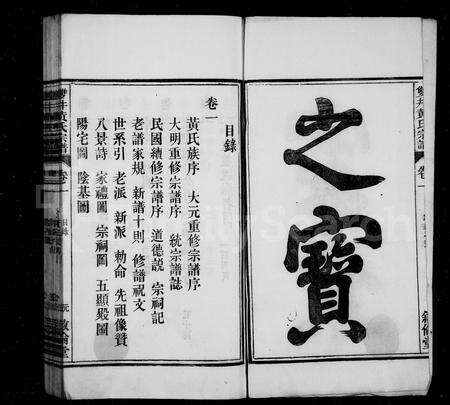 之寶
雙井黃氏宗譜
卷一
目錄
卷一
黃氏族序 大元重修宗譜序
大明重修宗譜序 統宗譜誌
民國續修宗譜序 道德說 宗祠記
老譜家規 新譜十則 修譜祝文
世系引 老派 新派 勅命 先祖像贊
八景詩 家禮圖 宗祠圖 五顯殿圖
陽宅圖 陰基圖
雙井黃氏宗譜
卷一